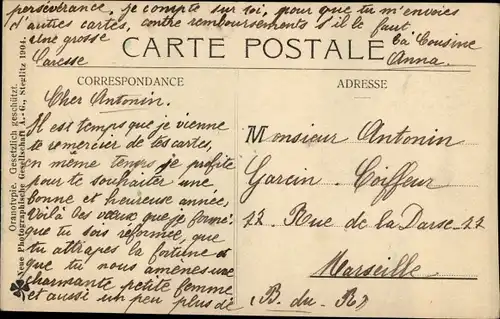 perséverance, je compte sur toi, pour que tu m'envoies
d'autres cartes, contre remboursements s'il le faut
une grosse
Caresse
Ta Cousine
Anna.
CARTE POSTALE
CORRESPONDANCE
Cher Antonin.
Il est temps que je vienne
te remercier de tes cartes,
en même temps je profite
pour te souhaiter une
bonne et heureuse année,
Voilà des vœux que je forme:
que tu sois réformée, que
tu attrapes la fortune et
que tu nous amènes une
charmante petite femme
et aussi un peu plus de
ADRESSE
Monsieur Antonin
Garcin. Coiffeur
22 Rue de la Darse 22
Marseille
(B. du. R)
Oranotypie. Gesetzlich geschützt.
Neue Photographische Gesellschaft A.-G., Steglitz 1904.